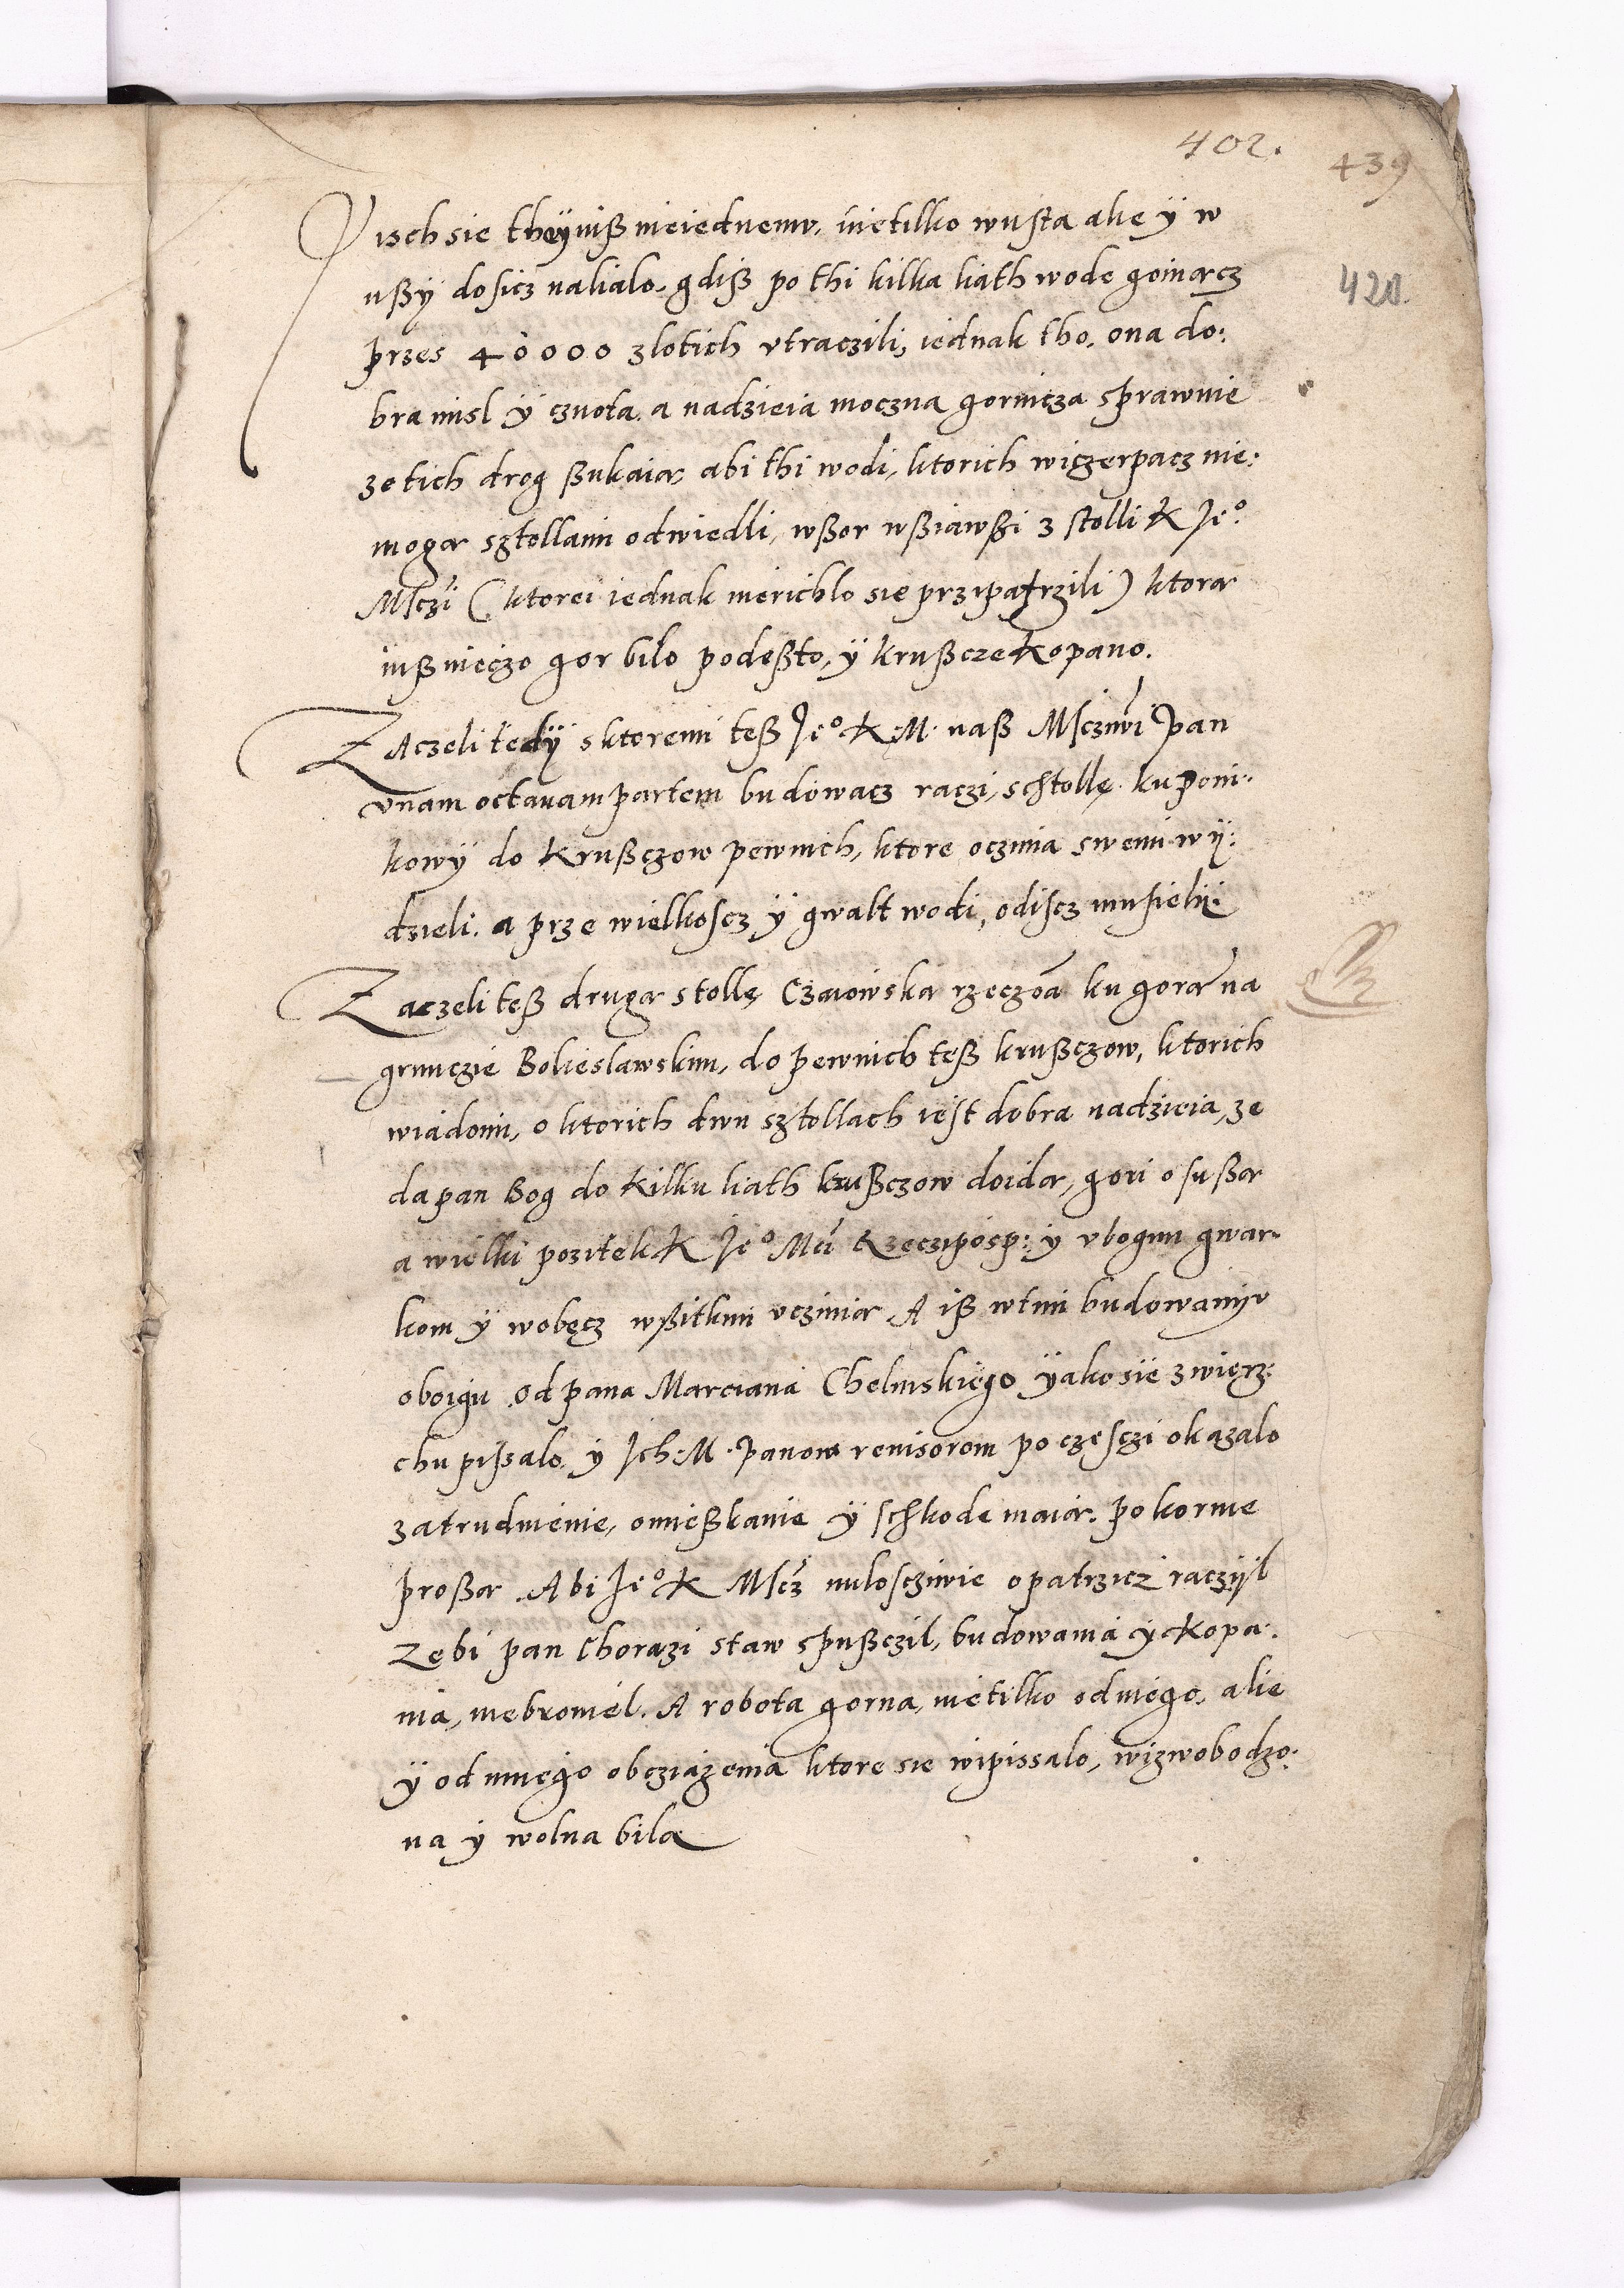 402.
439
Jusch sie they iuß nieiednemv, nietilko wusta alie ÿ w
ußÿ dosicz nalialo, gdiß po thi kilka liath wode goniacz
przes 40000 zlotich vtraczili, iednak tho, ona do:
bra misl ÿ cznota, a nadzieia moczna gornicza sprawnie
ze tich drog ßukaia, abi thi wodi, ktorich wiczerpacz nie:
moga sztollami odwiedli, wßor wßiawßi z stolli K Je°
Msczi (ktorei iednak nierichlo sie przipatrzili) ktora
iuß nieczo gor bilo podeßto, ÿ krußcze kopano.
ZAczeli tedÿ s ktoremi teß Je° K. M. naß Msczwi Pan
vnam octauam partem budowacz raczi, schtollę ku poni:
kowÿ do krußczow pewnich, ktore oczima swemi wÿ:
dzieli. a prze wielkoscz ÿ gwalt wodi, odiscz musielÿ
Zaczeli teß druga stollę Czaiowska rzeczoa ku gora na
grunczie Bolieslawskim, do pewnich teß krußczow, ktorich
wiadomi, o ktorich dwu sztollach iest dobra nadzieia, ze
da pan Bog do kilku liath krußczow doida, gori osußa
a wielki pozitek K Je° Mci Rzecziposp: ÿ vbogim gwar:
kom ÿ wobęcz wßitkim vczinia A iß wtim budowaniv
oboigu od pana Marciana Chelmskiego ÿako sie zwierz:
chu pissalo, ÿ Jch. M. Panom reuisorom po czesczi okazalo
zatrudnienie, omießkanie ÿ schkode maia. Pokornie
proßa. Abi Je° K Mscz miloscziwie opatrzicz raczÿl
Zebi pan Chorazi staw spußczil, budowania ÿ kopa:
nia, niebroniel. A robota gorna, nietilko odniego, alie
ÿ od innego obcziazenia ktore sie wipissalo, wizwobodzo:
na ÿ wolna bila